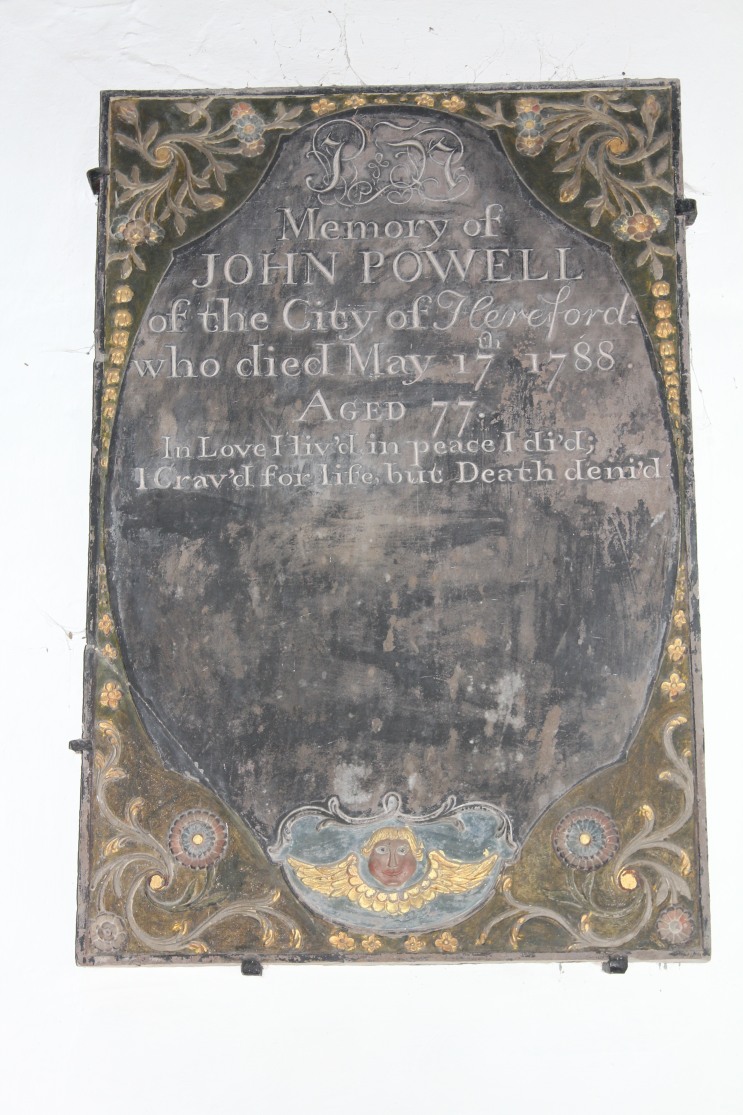 In
Memory of
JOHN POWELL
of the City of Hereford:
who died May 17th 1788.
AGED 77.
In Love I liv'd, in peace I di'd;
I Crav'd for life, but Death deni'd